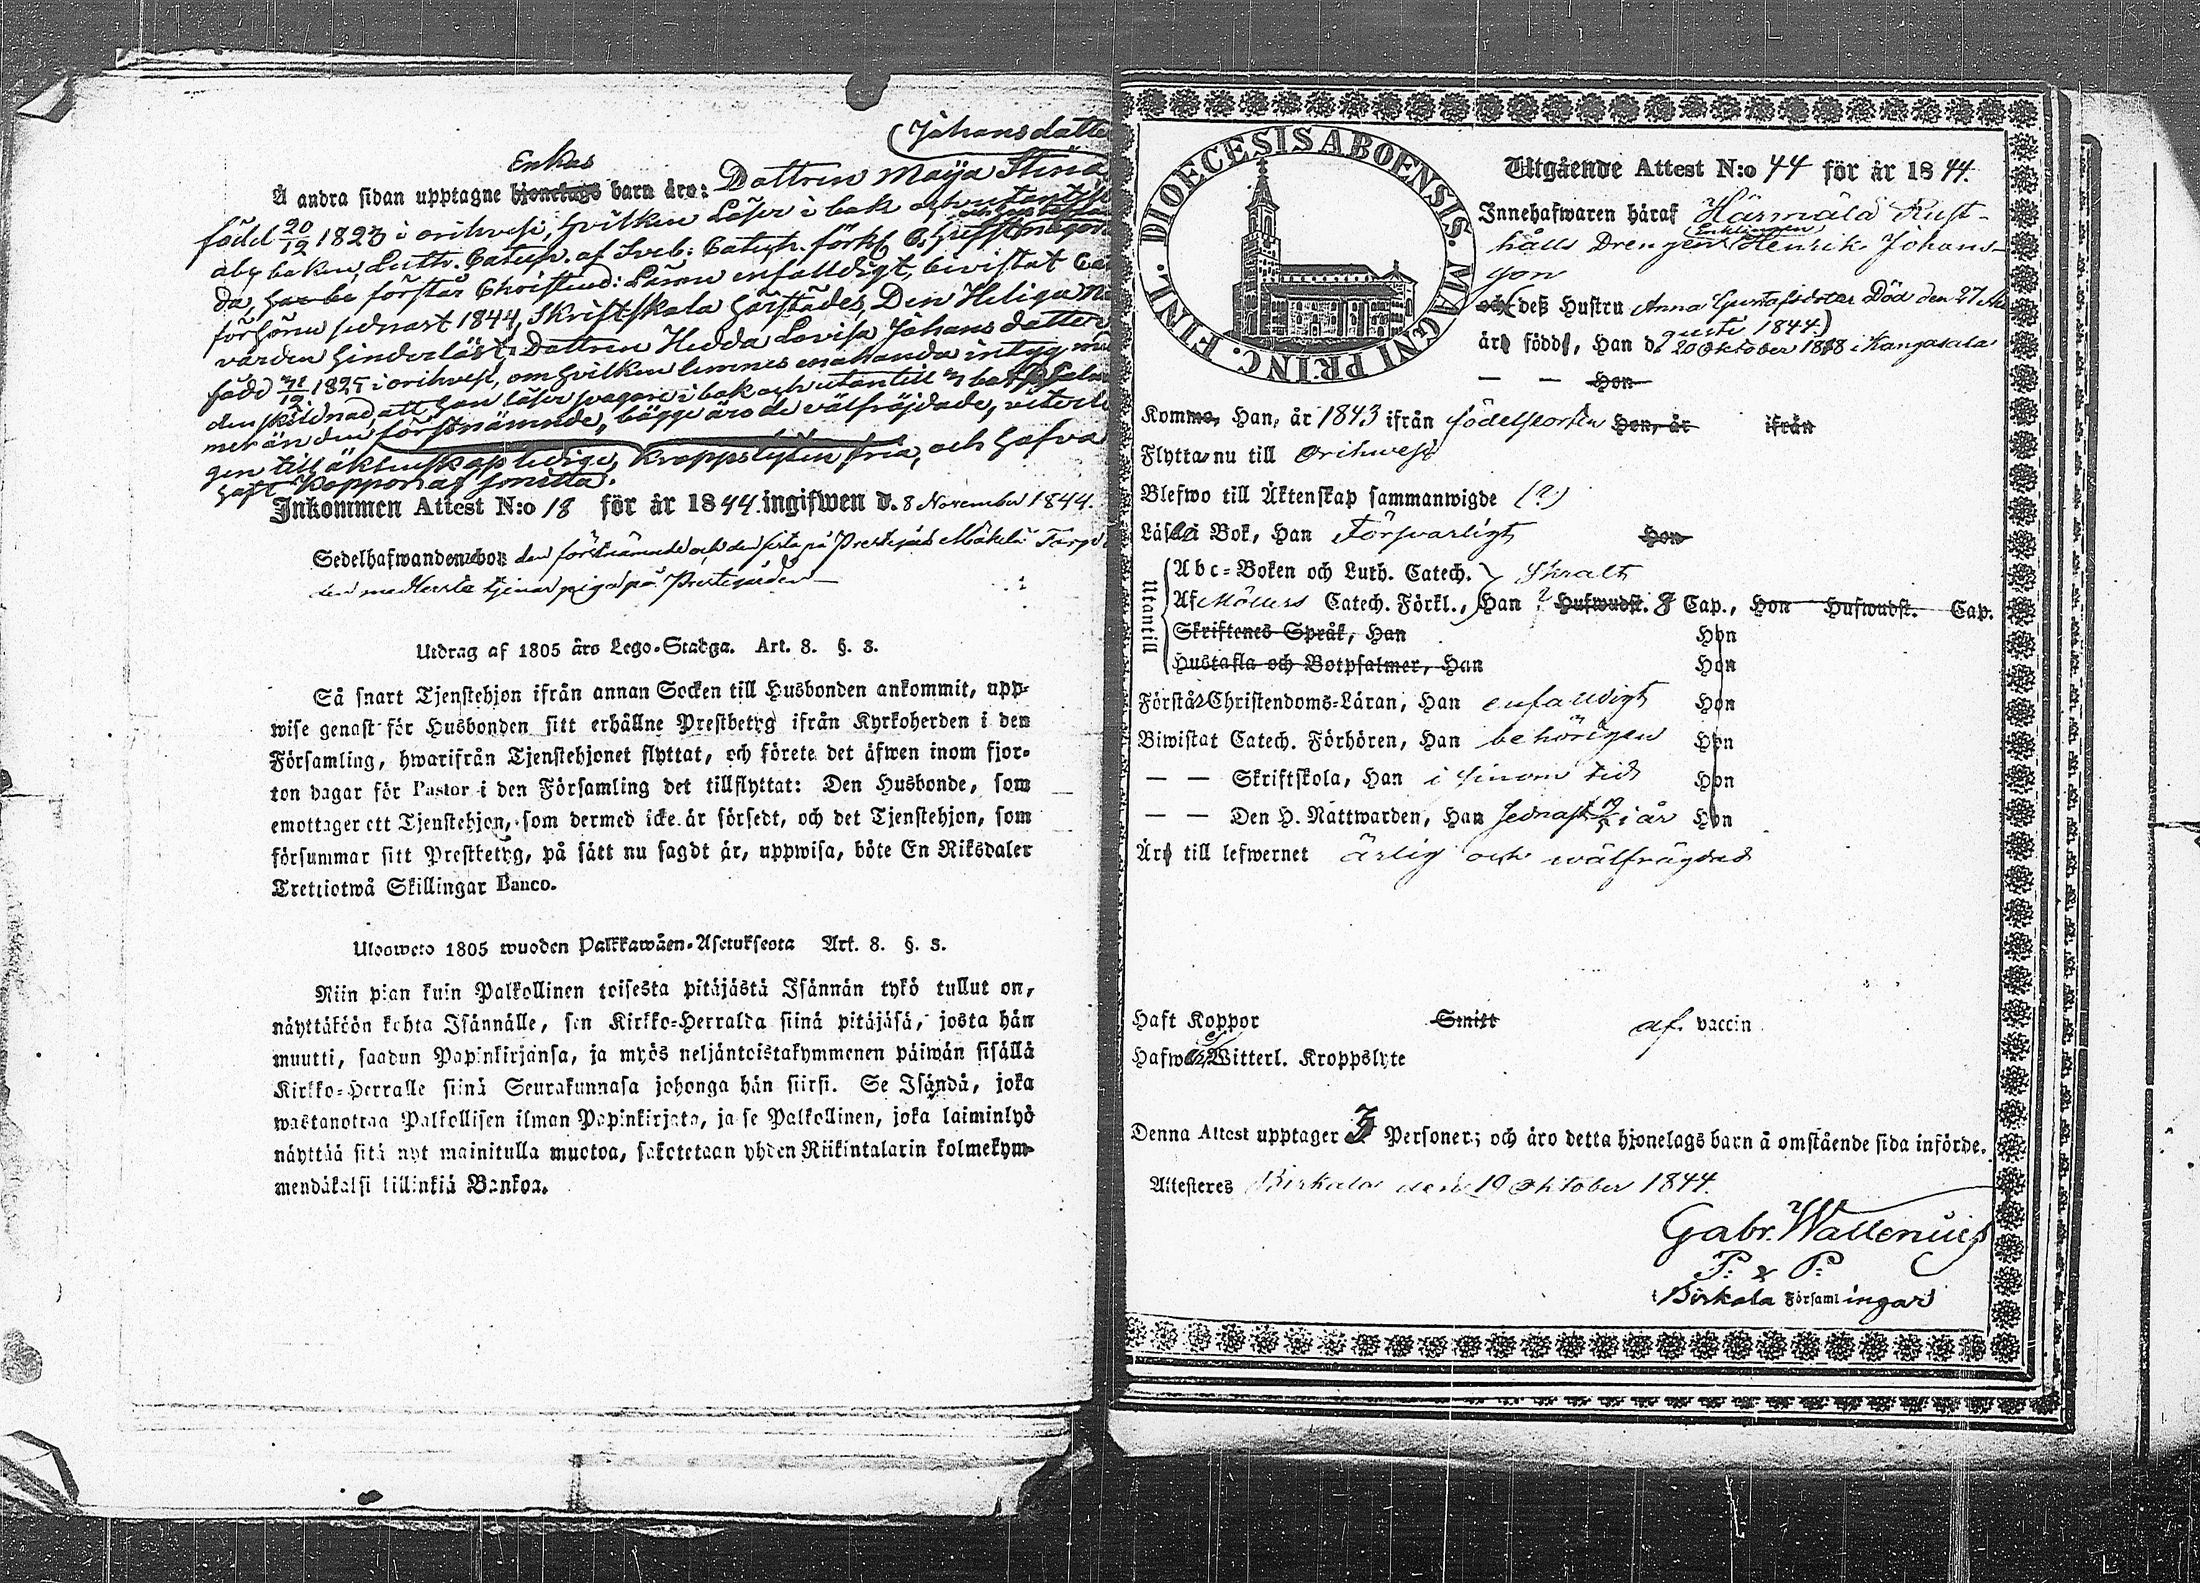 (Johansdotter
Enkas
Å andra sidan upptagne hjonelags barn äro: Dottren Maija Stina
född 20/12 1823 i orihvesi, hvilken Läser i bok
abc boken, Luth. Catech. af Sveb: Catech. förkl.
da, förstår Christend: Läran enfalldigt, bevistat
förhören sednast 1844, Skriftskola härstädes, Den Heliga
varden hinderlöst; Dottren Hedda Lovisa Johansdotter
född /12 1825 i orihvesi, om hvilken lemnes enahanda intyg med
den skilnad, att hon läser svagare i bok och utantill
mer än den förstnämnde, bägge äro de välfräjdade, veterli
gen till äktenskap ledige, Kroppslyten fria, och hafva
haft Koppor af smitta.
Inkommen Attest N:o 18 för år 1844. ingifwen d. 8 November 1844.
Sedelhafwanden bor den förstnämnde och den sista på Prestegårds Mäkelä Torp
den medlersta tjenar piga på Prestegården
Utdrag af 1805 års Lego-Stadga. Art. 8. §. 3.
Så snart Tjenstehjon ifrån annan Socken till Husbonden ankommit, upp-
wise genast för Husbonden sitt erhållne Prestbetyg ifrån Kyrkoherden i den
Församling, hwarifrån Tjenstehjonet flyttat, och förete det äfwen inom fjor-
ton dagar för Pastor i den Församling det tillflyttat: Den Husbonde, som
emottager ett Tjenstehjon, som dermed icke är försedt, och det Tjenstehjon, som
försummar sitt Prestbetyg, på sätt nu sagdt är, uppwisa, böte En Riksdaler
Trettiotwå Skillingar Banco.
Ulosweto 1805 wuoden Palkkawäen-Asetuksesta Art. 8. §. 3.
Niin pian kuin Palkollinen toisesta pitäjästä Isännän tykö tullut on,
näyttäköön kohta Isännälle, sen Kirkko-Herralda siinä pitäjäsä, josta hän
muutti, saadun Papinkirjansa, ja myös neljäntoistakymmenen päiwän sisällä
Kirkko-Herralle siinä Seurakunnasa johonga hän siirsi. Se Isändä, joka
wastanottaa Palkollisen ilman Papinkirjata, ja se Palkollinen, joka laiminlyö
näyttää sitä nyt mainitulla muotoa, sakotetaan yhden Riikintalarin kolmekym-
mendäkaksi killinkiä Bankoa.
DIOECESIS ABOENSIS. MAGNI PRINC. FINL.
Utgående Attest N:o 44 för år 1844.
Innehafwaren häraf Härmälä Rust-
hålls Drengen Enklingen Henrik Johans-
son
och (deß Hustru Anna Gustafsdotter Död den 27 Au
gusti 1844.)
äro födde, Han d. 20 Oktober 1808 i Kangasala
— — Hon
Komma, Han, år 1843 ifrån födelseorten Hon, år ifrån
Flytta nu till Orihvesi
Blefwo till Äktenskap sammanwigde (?)
Läsa i Bok, Han Försvarligt Hon
Utantill
Abc-Boken och Luth. Catech. Svalt
Af Möllers Catech. Förkl., Han ? Hufwudst. 8 Cap., Hon Hufwudst. Cap.
Skriftenes Språk, Han Hon
Hustafla och Botpsalmer, Han Hon
Förstår Christendoms-Läran, Han enfaldigt Hon
Biwistat Catech. Förhören, Han behörigen Hon
— — Skriftskola, Han i sinom tid Hon
— — Den H. Nattwarden, Han sednast i år Hon
Äro till lefwernet ärlig och wälfrägdad
Haft Koppor Smitt af. vaccin
Hafwa ej Witterl. Kroppslyte
Denna Attest upptager 3 Personer; och äro detta hjonelags barn å omstående sida införde.
Attesteres Birkala den 19 Oktober 1844.
Gabr. Wallenius
P. & P.
i Birkala Församlingar